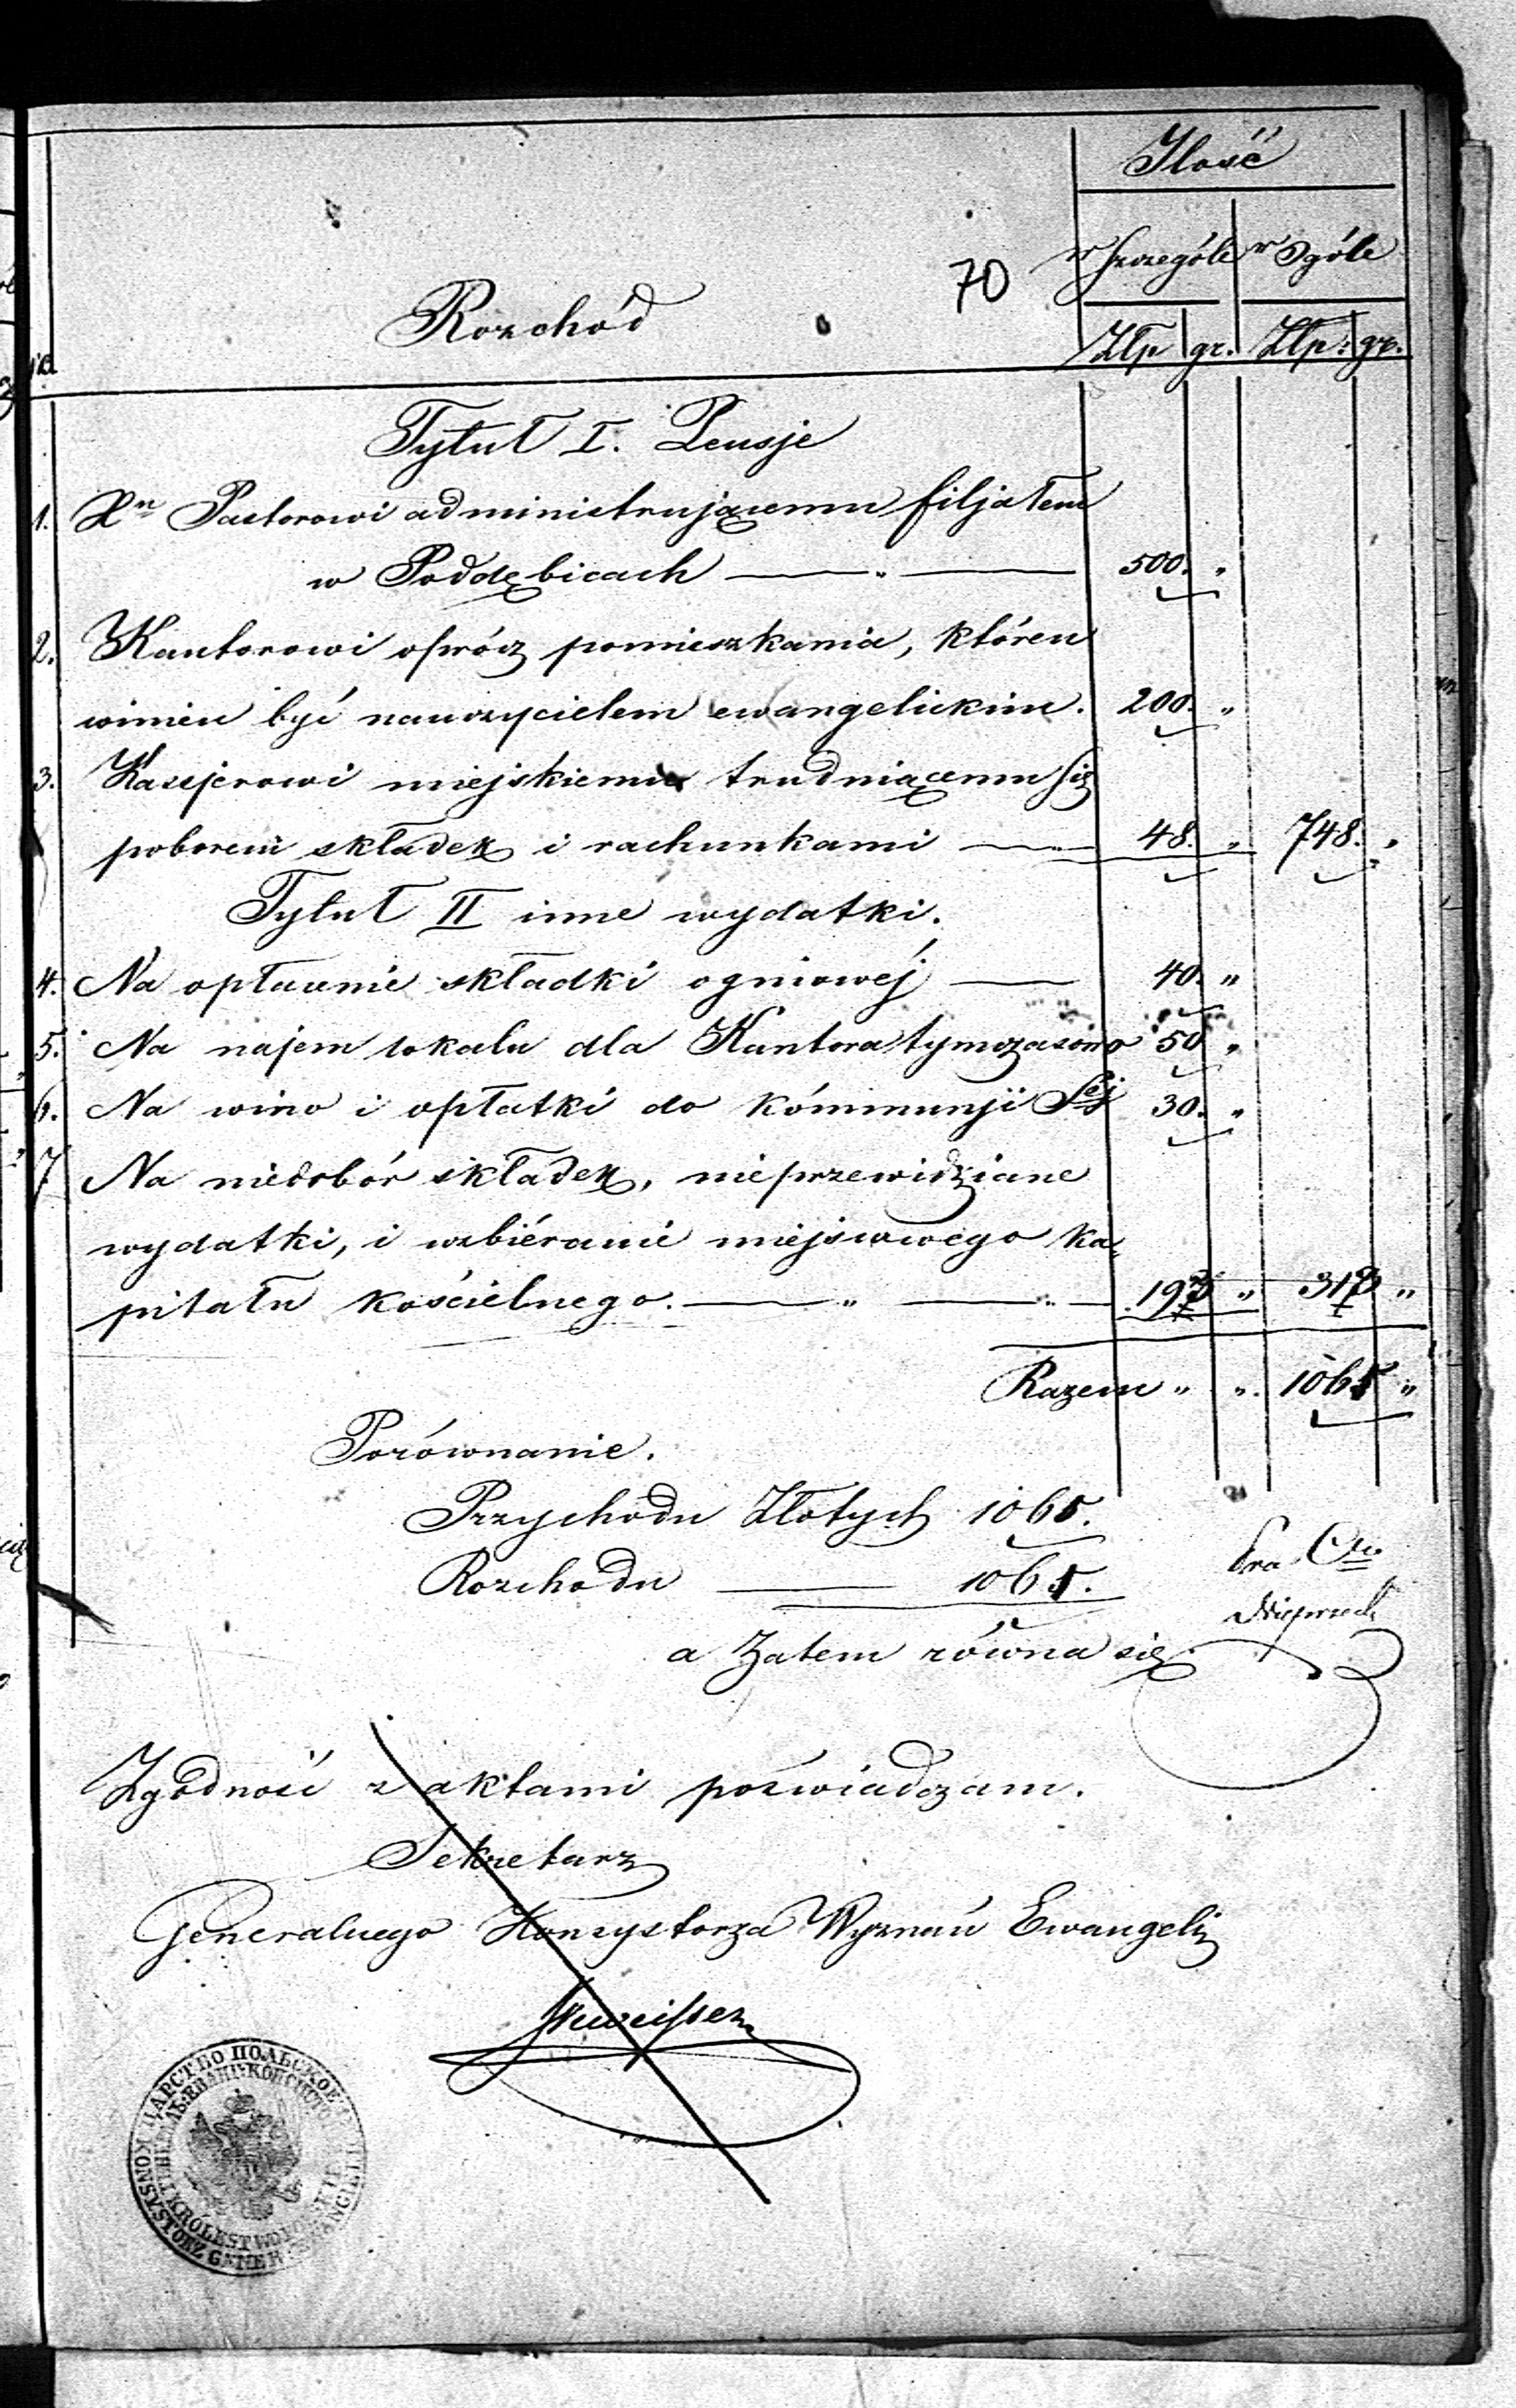 Ilość
70
w Szczególe w Ogóle
Rozchód
Złp gr. Złp: gr.
Tytuł I. Pensje
1. Xu Pastorowi administrującemu filjałem
w Poddębicach — „ — 500. „
2. Kantorowi oprócz pomieszkania, któren
winien być nauczycielem ewangelickim. 200. „
3. Kassjerowi miejskiemu trudniącemu się
poborem składek i rachunkami — 48. „ 748. „
Tytuł II inne wydatki.
4. Na opłacenie składki ogniowéj — 40. „
5. Na najem lokalu dla Kantora tymczasowo 50 „
6. Na wino i opłatki do kómmunji Séj 30. „
7 Na niedobór składek, nieprzewidziane
wydatki, i uzbiéranié miejscowego ka„
pitału kościelnego. — „ — „ — 197 „ 317 „
Razem „ „ 1065 „
Porównanie.
Przychodu Złotych 1065.
Rozchodu — 1065.
a Zatem równa się
Zgodność z aktami poświadczam.
Sekretarz
Generalnego Konsystorza Wyznań Ewangeli
ЦАРСТВО ПОЛЬСКОЕ
KONSYSTORZ GENER
KRÓLESTWO